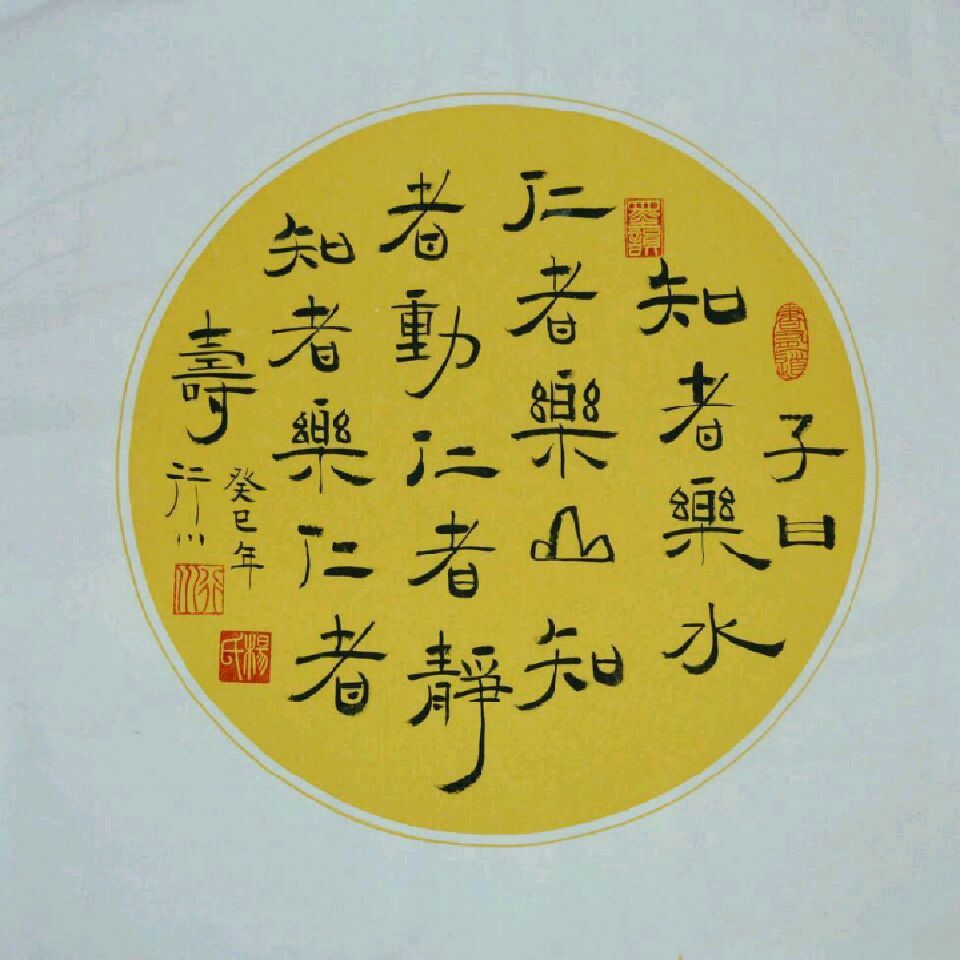 子曰
知者樂水
仁者樂山知
者動仁者靜
知者樂仁者
壽
癸巳年
行川
墨韻
楊氏